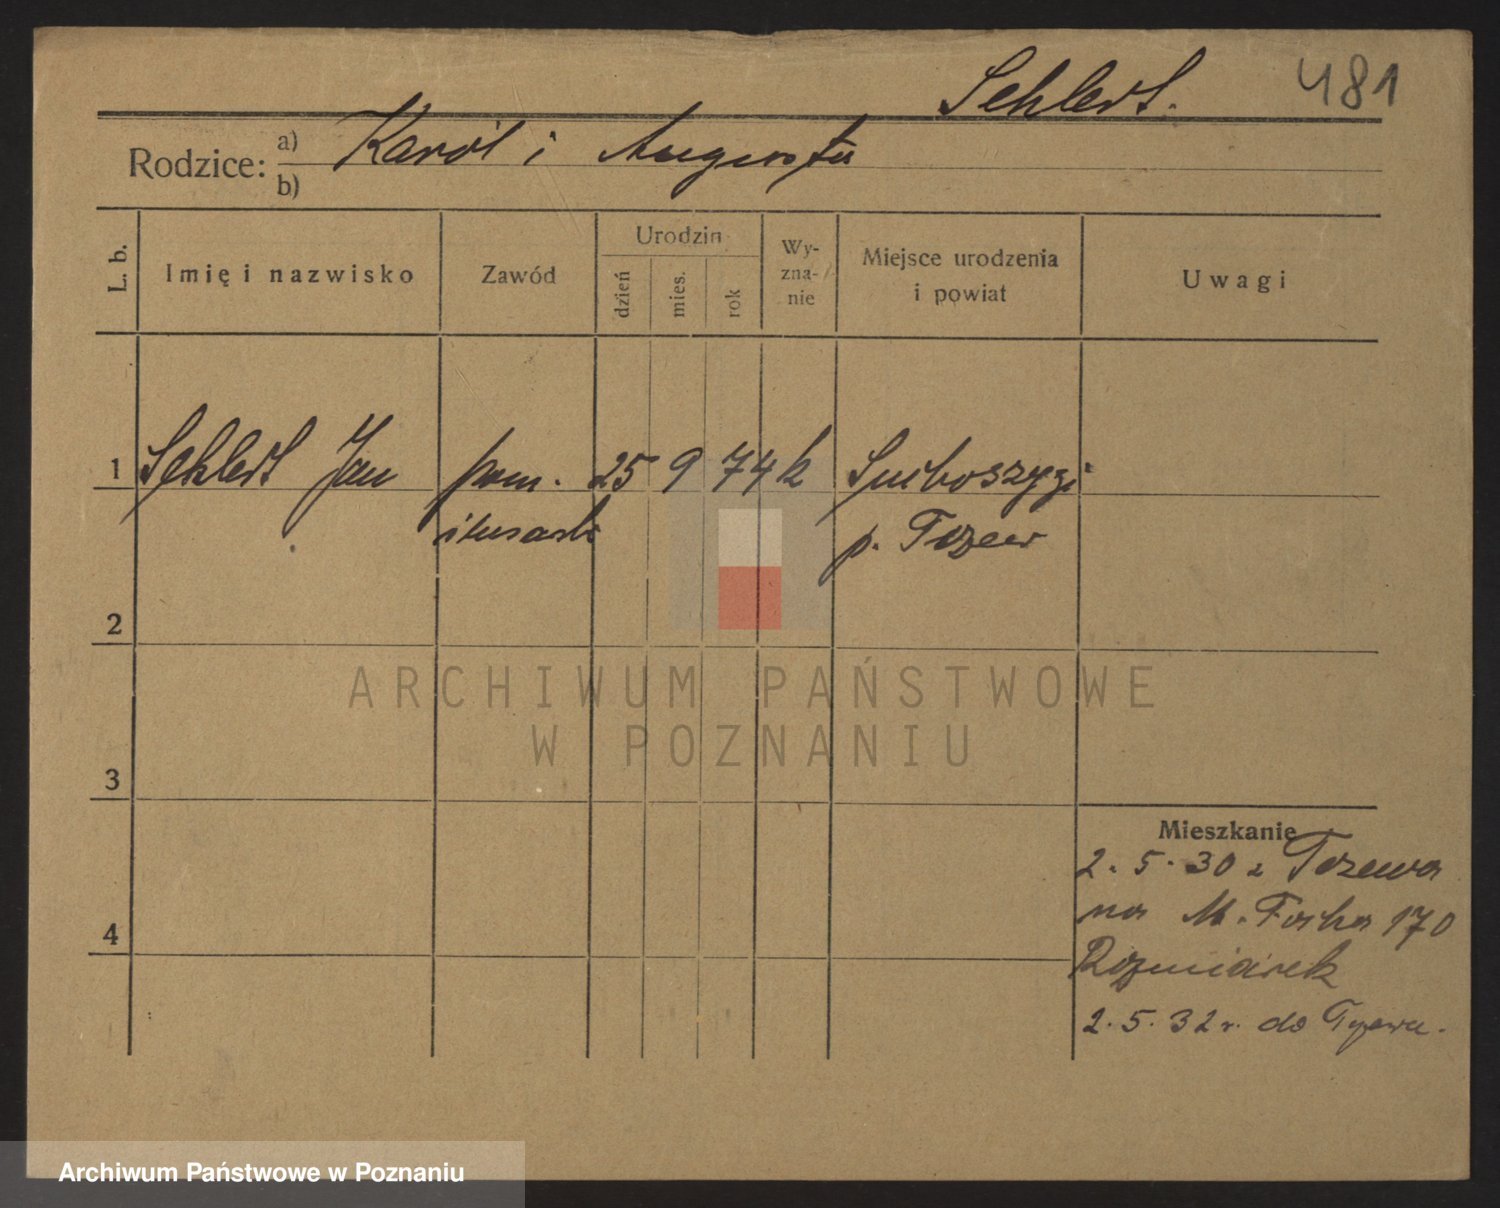 Sehlert. 481
Rodzice: a) Karol i Augusta
b)
L. b. Imię i nazwisko Zawód Urodzin dzień mies. rok Wy-zna-nie Miejsce urodzenia i powiat Uwagi
1 Sehlert Jan pom. 25 9 74 k
p. Tczew
2
ARCHIWUM PAŃSTWOWE
W POZNANIU
3
Mieszkanie
2. 5. 30 z Tczewa
4 na M. Focha 170
2. 5. 32 r. do Tczewa.
Archiwum Państwowe w Poznaniu